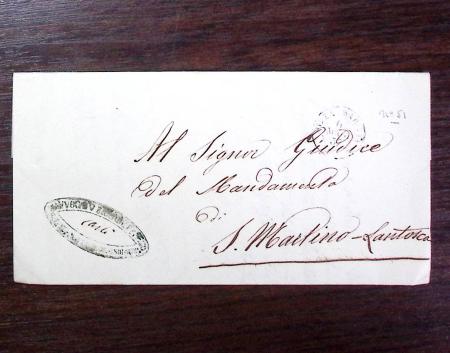 Al Signor Giudice
del Mandamento
di
S. Martino-Lantosca